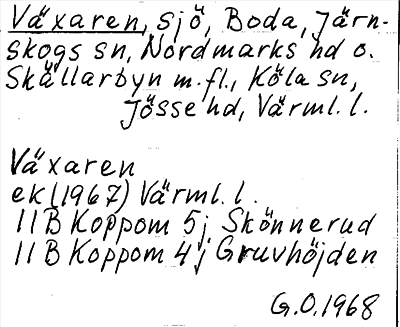 Växaren, sjö, Boda, Järn-
skogs sn, Nordmarks hd o.
Skällarbyn m.fl., Köla sn,
Jösse hd, Värml. l.
Växaren
ek (1967) Värml. l.
11B Koppom 5j Skönnerud
11B Koppom 4j Gruvhöjden
G.O. 1968